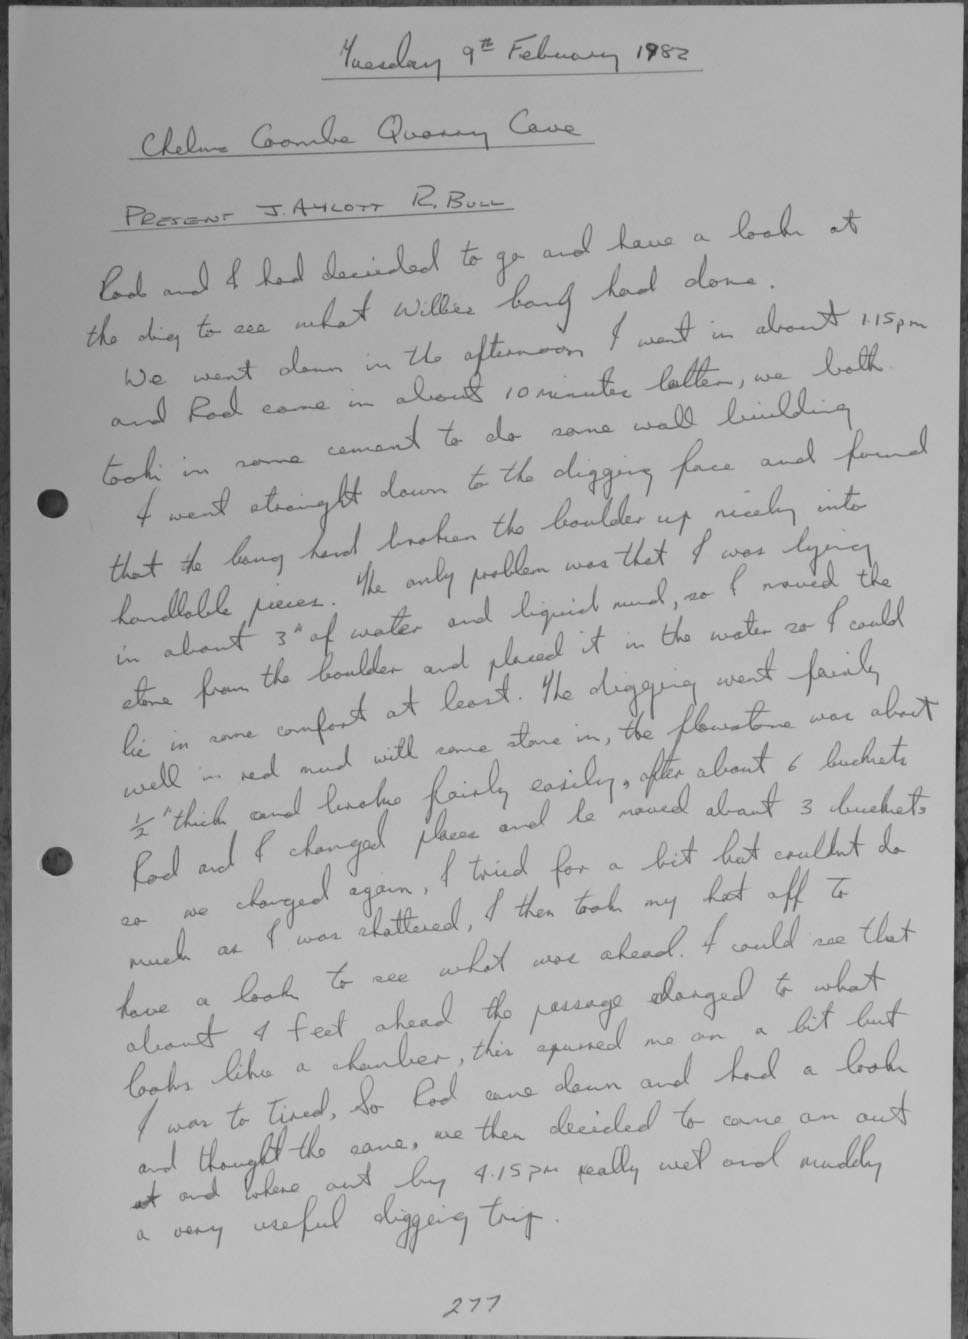 Tuesday 9th February 1982
Chelms Coombe Quarry Cave
PRESENT J. AYLOTT R. BULL
Rod and I had decided to go and have a look at
the dig to see what Willies bang had done.
We went down in the afternoon I went in about 1.15pm
and Rod came in about 10 minutes latter, we both
took in some cement to do some wall building
I went straight down to the digging face and found
that the bang had broken the boulder up nicely into
handlable pieces. The only problem was that I was lying
in about 3" of water and liquid mud, so I moved the
stone from the boulder and placed it in the water so I could
lie in some comfort at least. The digging went fairly
well in red mud with some stone in, the flowstone was about
½" thick and broke fairly easily, after about 6 buckets
Rod and I changed places and he moved about 3 buckets
so we changed again, I tried for a bit but couldnt do
much as I was shattered, I then took my hat off to
have a look to see what was ahead. I could see that
about 4 feet ahead the passage enlarged to what
looks like a chamber, this spurred me on a bit but
I was to tired, So Rod came down and had a look
and thought the same, we then decided to come on out
and where out by 4.15pm really wet and muddy
a very useful digging trip.
277